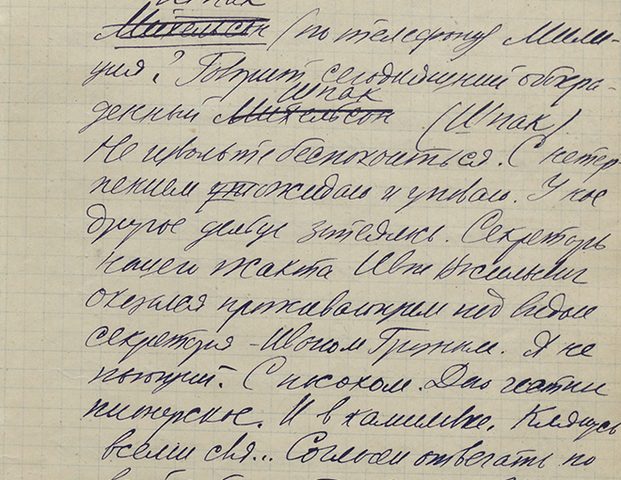 Шпак
Михельсон (по телефону) Мили-
ция? Говорит сегодняшний обкра-
Шпак
денный Михельсон (Шпак).
Не извольте беспокоиться. С нетер-
пением ожидаю и уповаю. У нас
другое дельце затеялось. Секретарь
нашего жакта Иван Васильевич
оказался проживающим под видом
секретаря - Иваном Грозным. Я не
пьющий. С посохом. Даю честное
пионерское. И в камилавке. Клянусь
всеми свя... Согласен отвечать по